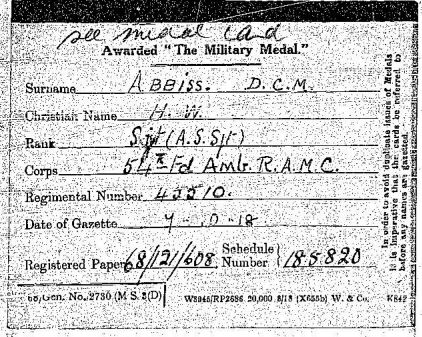 see medal card
Awarded "The Military Medal."
Surname ABBISS. D.C.M.
Christian Name H. W.
Rank Sjt (A.S.Sjt)
Corps 54th Fd Amb. R.A.M.C.
Regimental Number
Date of Gazette
Registered Paper 68/121/608. Schedule Number 185820
Gen. No. 2730 (M S. 3(D) W8945/RP2686 20,000 8/18 (X655b) W. & Co. K842
In order to avoid duplicate issues of Medals
it is imperative that the cards be referred to
before any names are gazetted.